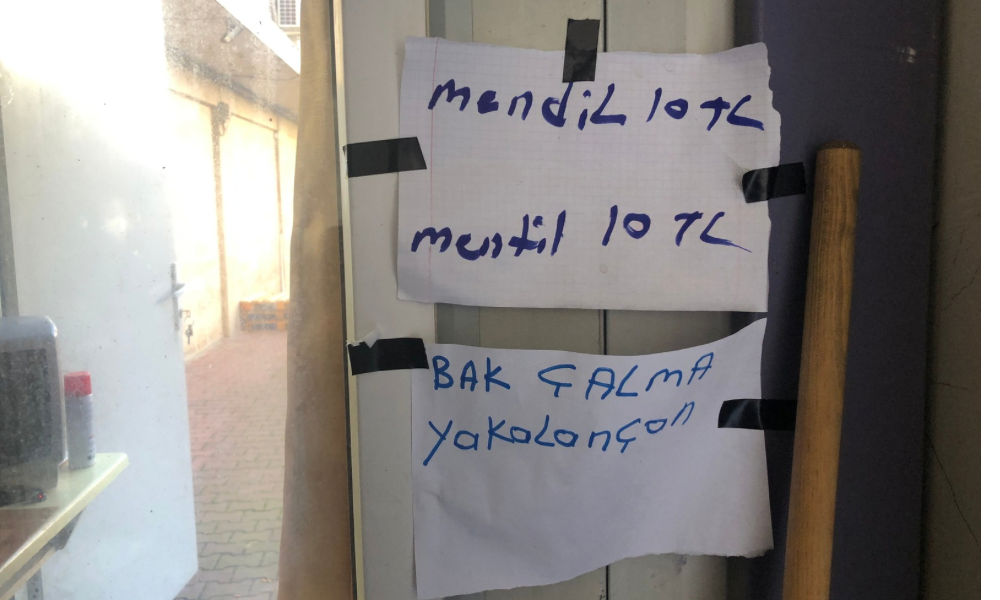 mendiL 10 TL
mentil 10 TL
BAK ÇALMA
yakaLançan